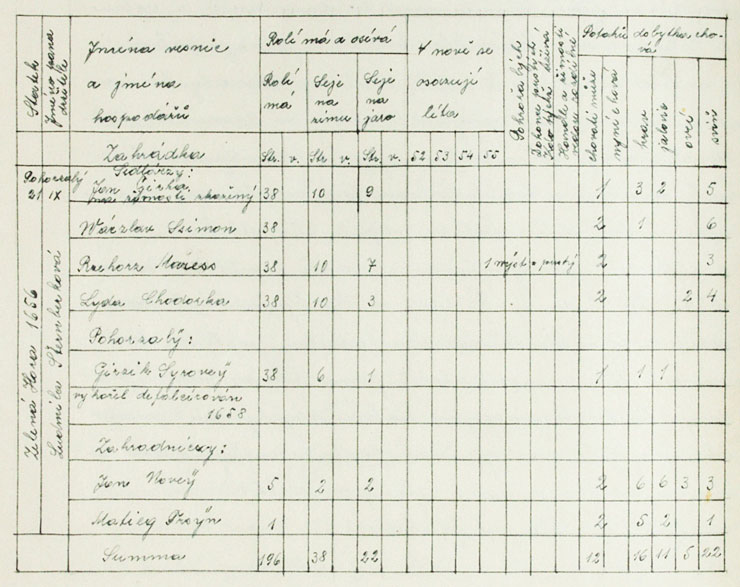 Statek
Jméno pana držitele
Jména vesnic a jména hospodářů
Rolí má a osívá
Rolí má
Seje na zimu
Seje na jaro
V nově se osazují léta
Pohořalých
Potahů dobytka chová
chovati může
nyní chová
krav
jalovic
ovcí
sviň
Zahrádka
Str. v. Str. v. Str. v. 52 53 54 55
Pohorzalý 21 IX
Zelená Hora 1656
Ludmila Sternberková
Sidlaczy:
Jan 38 10 9 1 3 2 5
Wáczlav Szimon 38 2 1 6
Rzehorz Maress 38 10 7 2 3
Lyda Chodorka 38 10 3 2 2 4
Pohorzalý:
Girzik Syrovey 38 6 1 1 1 1
vyhořel defalcírován 1658
Zahradniczy:
Jan Novey 5 2 2 2 6 6 3 3
Matieg 1 2 5 2 1
Summa 196 38 22 12 16 11 5 22